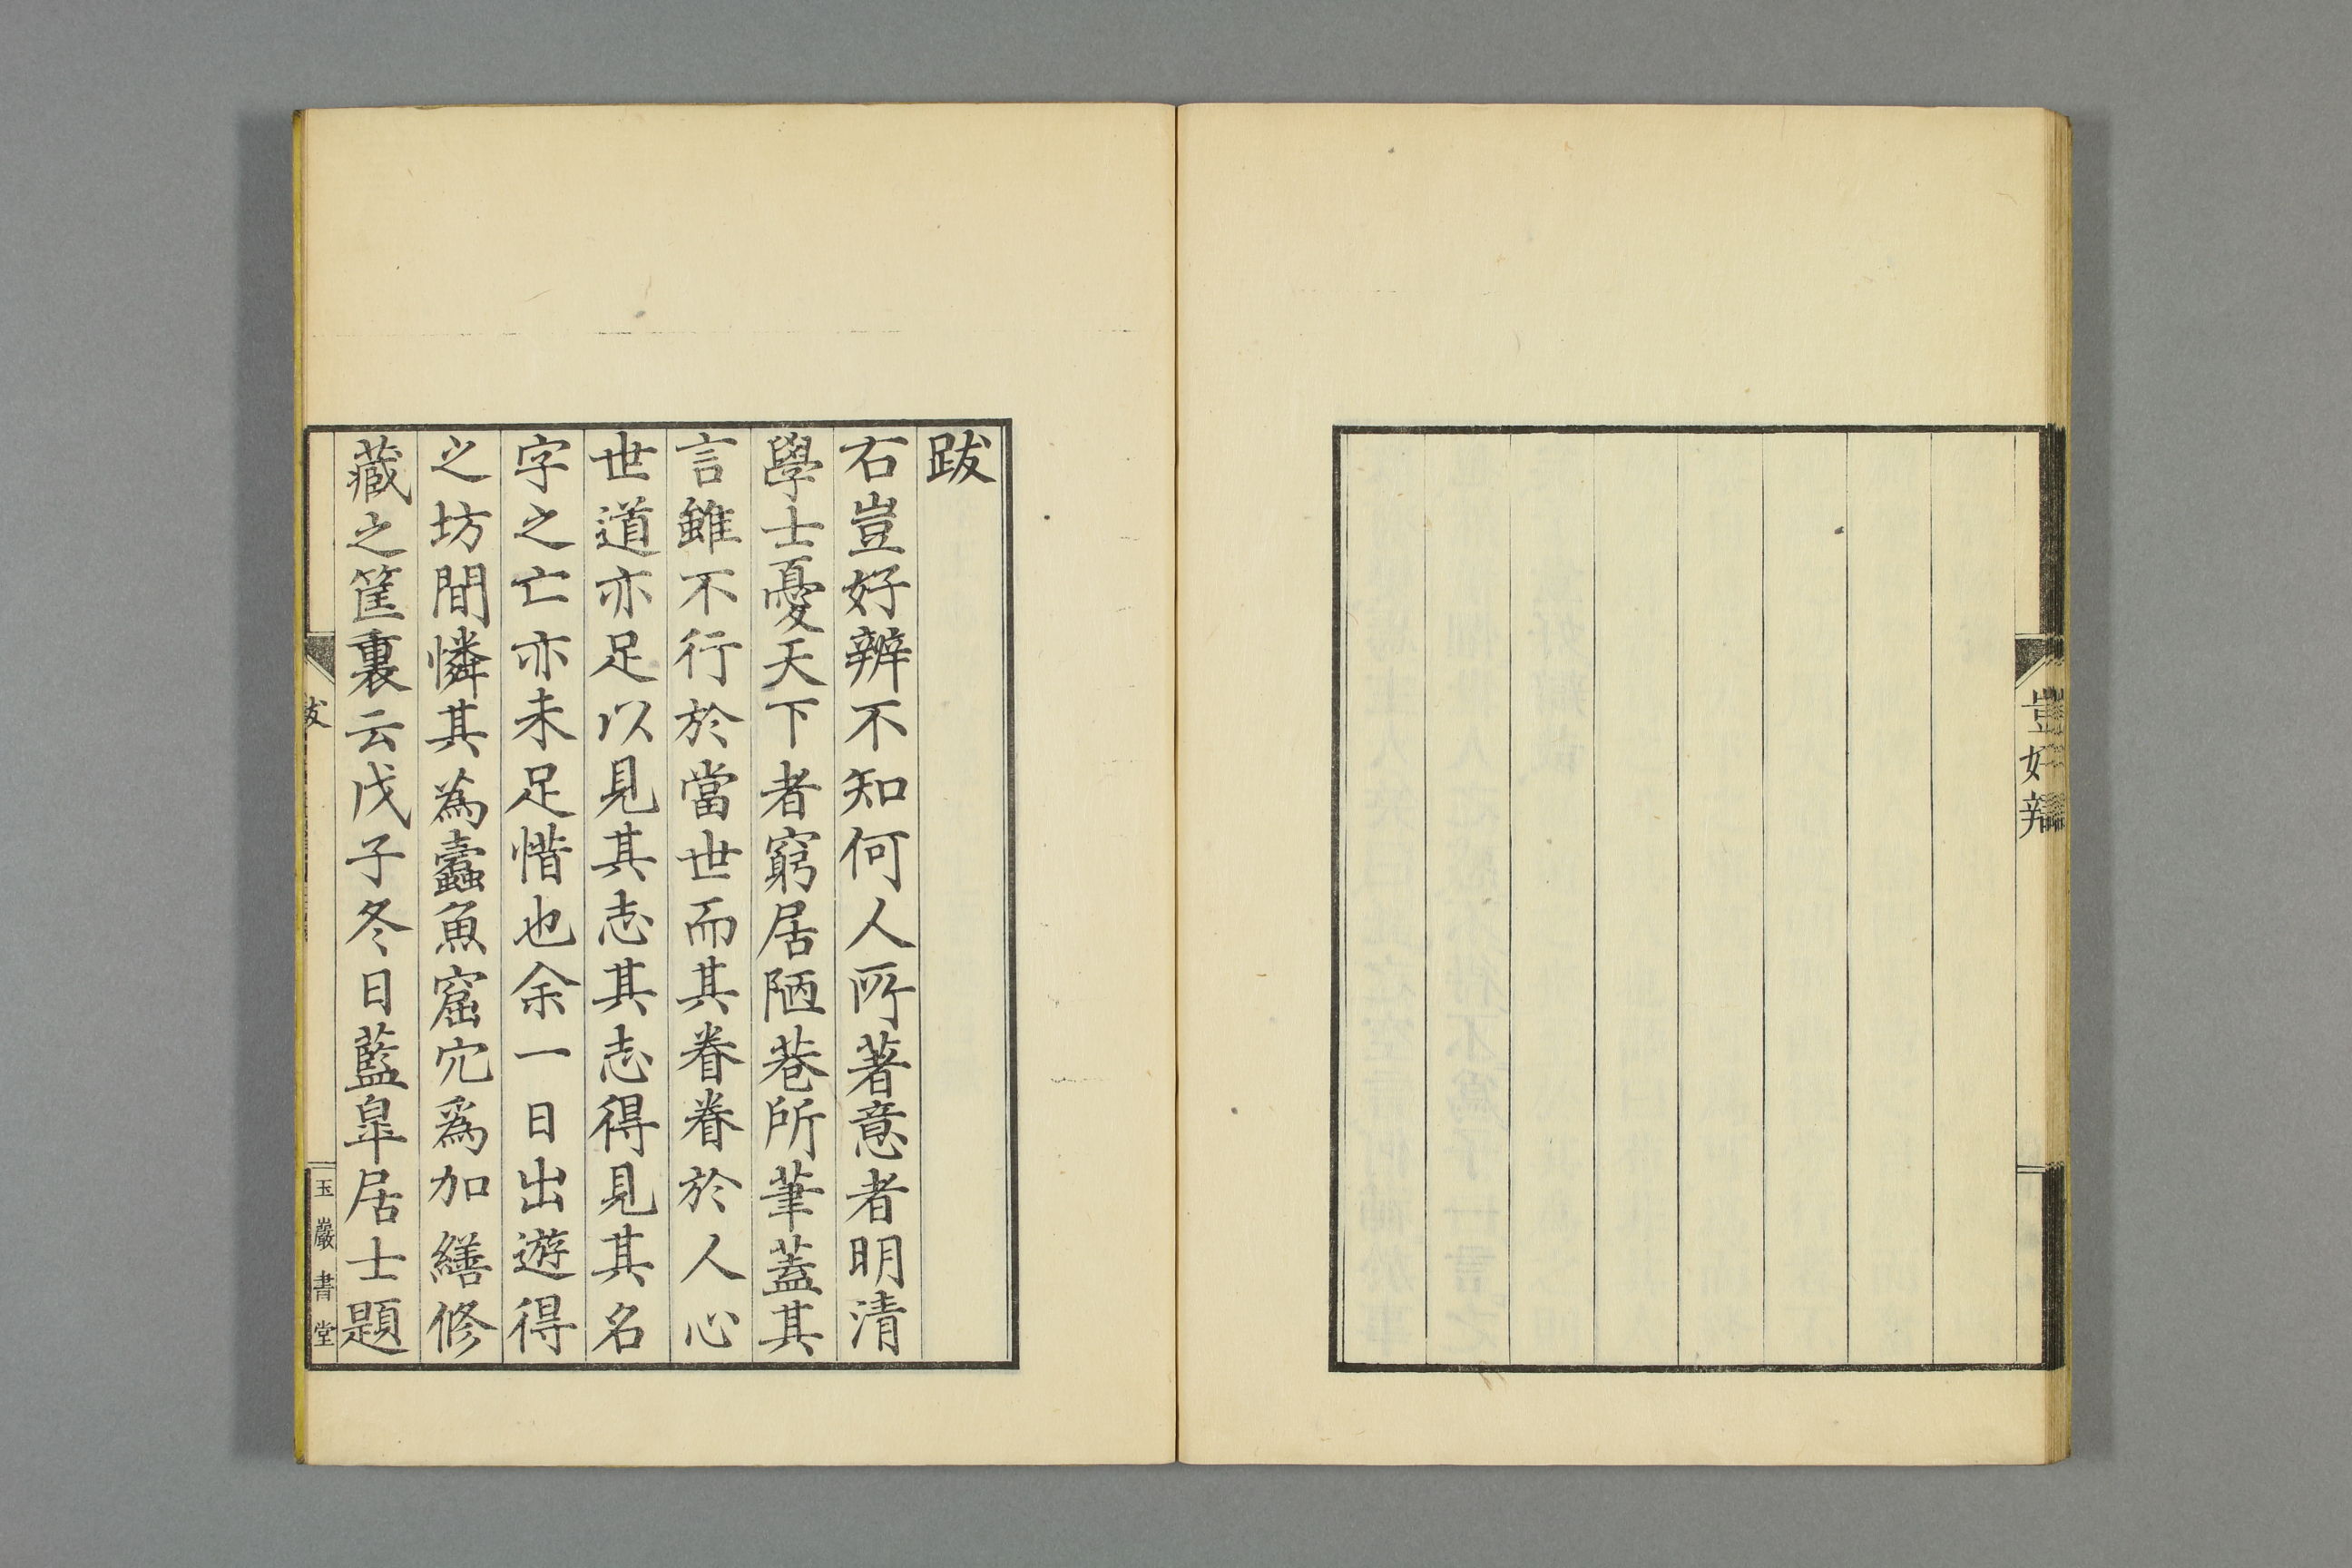 豈好辨
跋
石豈好辨不知何人所著意者明清
學士憂天下者窮居陋巷所筆蓋其
言雖不行於當世而其眷眷於人心
世道亦足以見其志其志得見其名
字之亡亦未足惜也余一日出遊得
之坊間憐其為蠹魚窟穴爲加繕修
藏之筐裏云戊子冬日藍皐居士題
跋
玉巖書堂